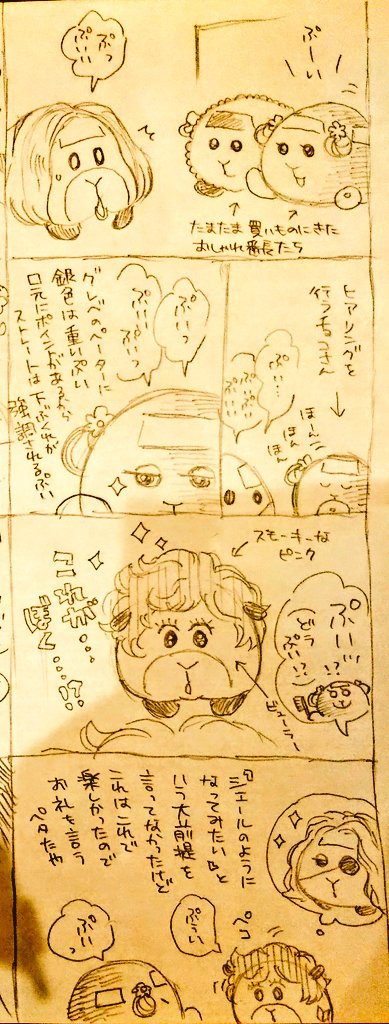 ぷーい
ぷっ
ぷいい
たまたま買いものにきた
おしゃれ番長たち
ヒアリングを
行うちっきん
ほーん
ほん
ほん
ぷい…
ぷいぷい
ぷいぷい
ぷいっ
ぷいぷい
ぷいっ
グレベのペーターに
銀色は重いぷい
口元にポイントがあるから
ストレートは下ぶくれが
強調されるぷい
スモーキーな
ピンク
ぷいッ
どう
ぷい!?
!?
これが…
ぼく…!?
ビューラー
『シエールのように
なってみたい』と
いう大前提を
言ってなかったけど
これはこれで
楽しかったので
お礼を言う
ペタたや
ペコ
ぷうい
ぷいっ